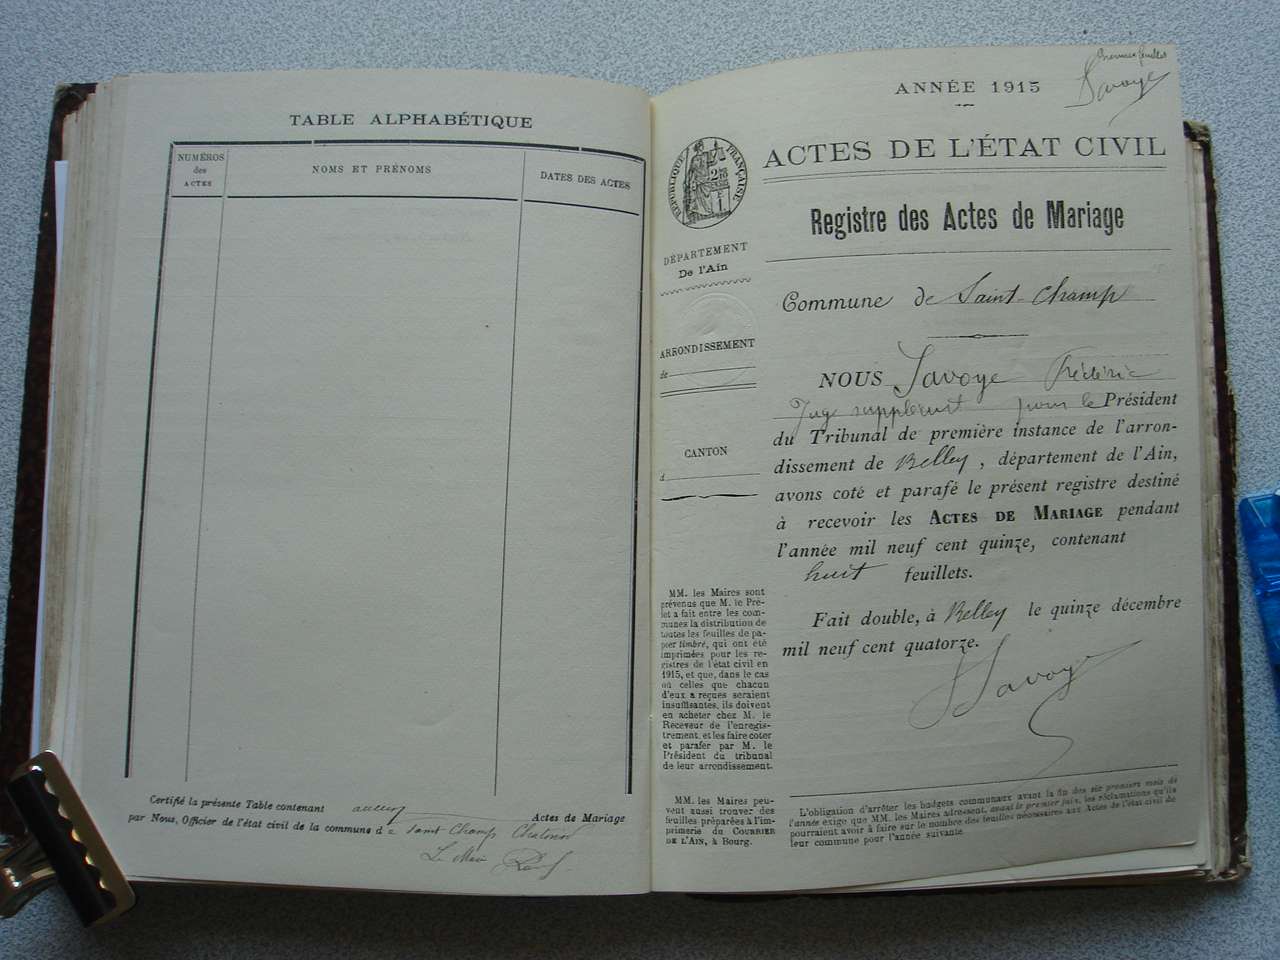 TABLE ALPHABÉTIQUE
NUMÉROS
des
ACTES
NOMS ET PRÉNOMS
DATES DES ACTES
Certifié la présente Table contenant aucun Actes de Mariage
par Nous, Officier de l'état civil de la commune de Saint Champ Chatonod
Le Maire
Savoye
ANNÉE 1915
RÉPUBLIQUE FRANÇAISE
ACTES DE L'ÉTAT CIVIL
Registre des Actes de Mariage
DÉPARTEMENT
De l'Ain
Commune de Saint-Champ
ARRONDISSEMENT
de
CANTON
d
NOUS Savoye Frédéric
Juge suppléant pour le Président
du Tribunal de première instance de l'arron-
dissement de Belley, département de l'Ain,
avons coté et parafé le présent registre destiné
à recevoir les ACTES DE MARIAGE pendant
l'année mil neuf cent quinze, contenant
huit feuillets.
Fait double, à Belley le quinze décembre
mil neuf cent quatorze.
Savoye
MM. les Maires sont
prévenus que M. le Pré-
fet a fait entre les com-
munes la distribution de
toutes les feuilles de pa-
pier timbré, qui ont été
imprimées pour les re-
gistres de l'état civil en
1915, et que, dans le cas
où celles que chacun
d'eux a reçues seraient
insuffisantes, ils doivent
en acheter chez M. le
Receveur de l'enregis-
trement, et les faire coter
et parafer par M. le
Président du tribunal
de leur arrondissement.
MM. les Maires peu-
vent aussi trouver des
feuilles préparées à l'im-
primerie du COURRIER
DE L'AIN, à Bourg.
L'obligation d'arrêter les budgets communaux avant la fin des six premiers mois de
l'année exige que MM. les Maires adressent, avant le premier juin, les réclamations qu'ils
pourraient avoir à faire sur le nombre des feuilles nécessaires aux Actes de l'état civil de
leur commune pour l'année suivante.